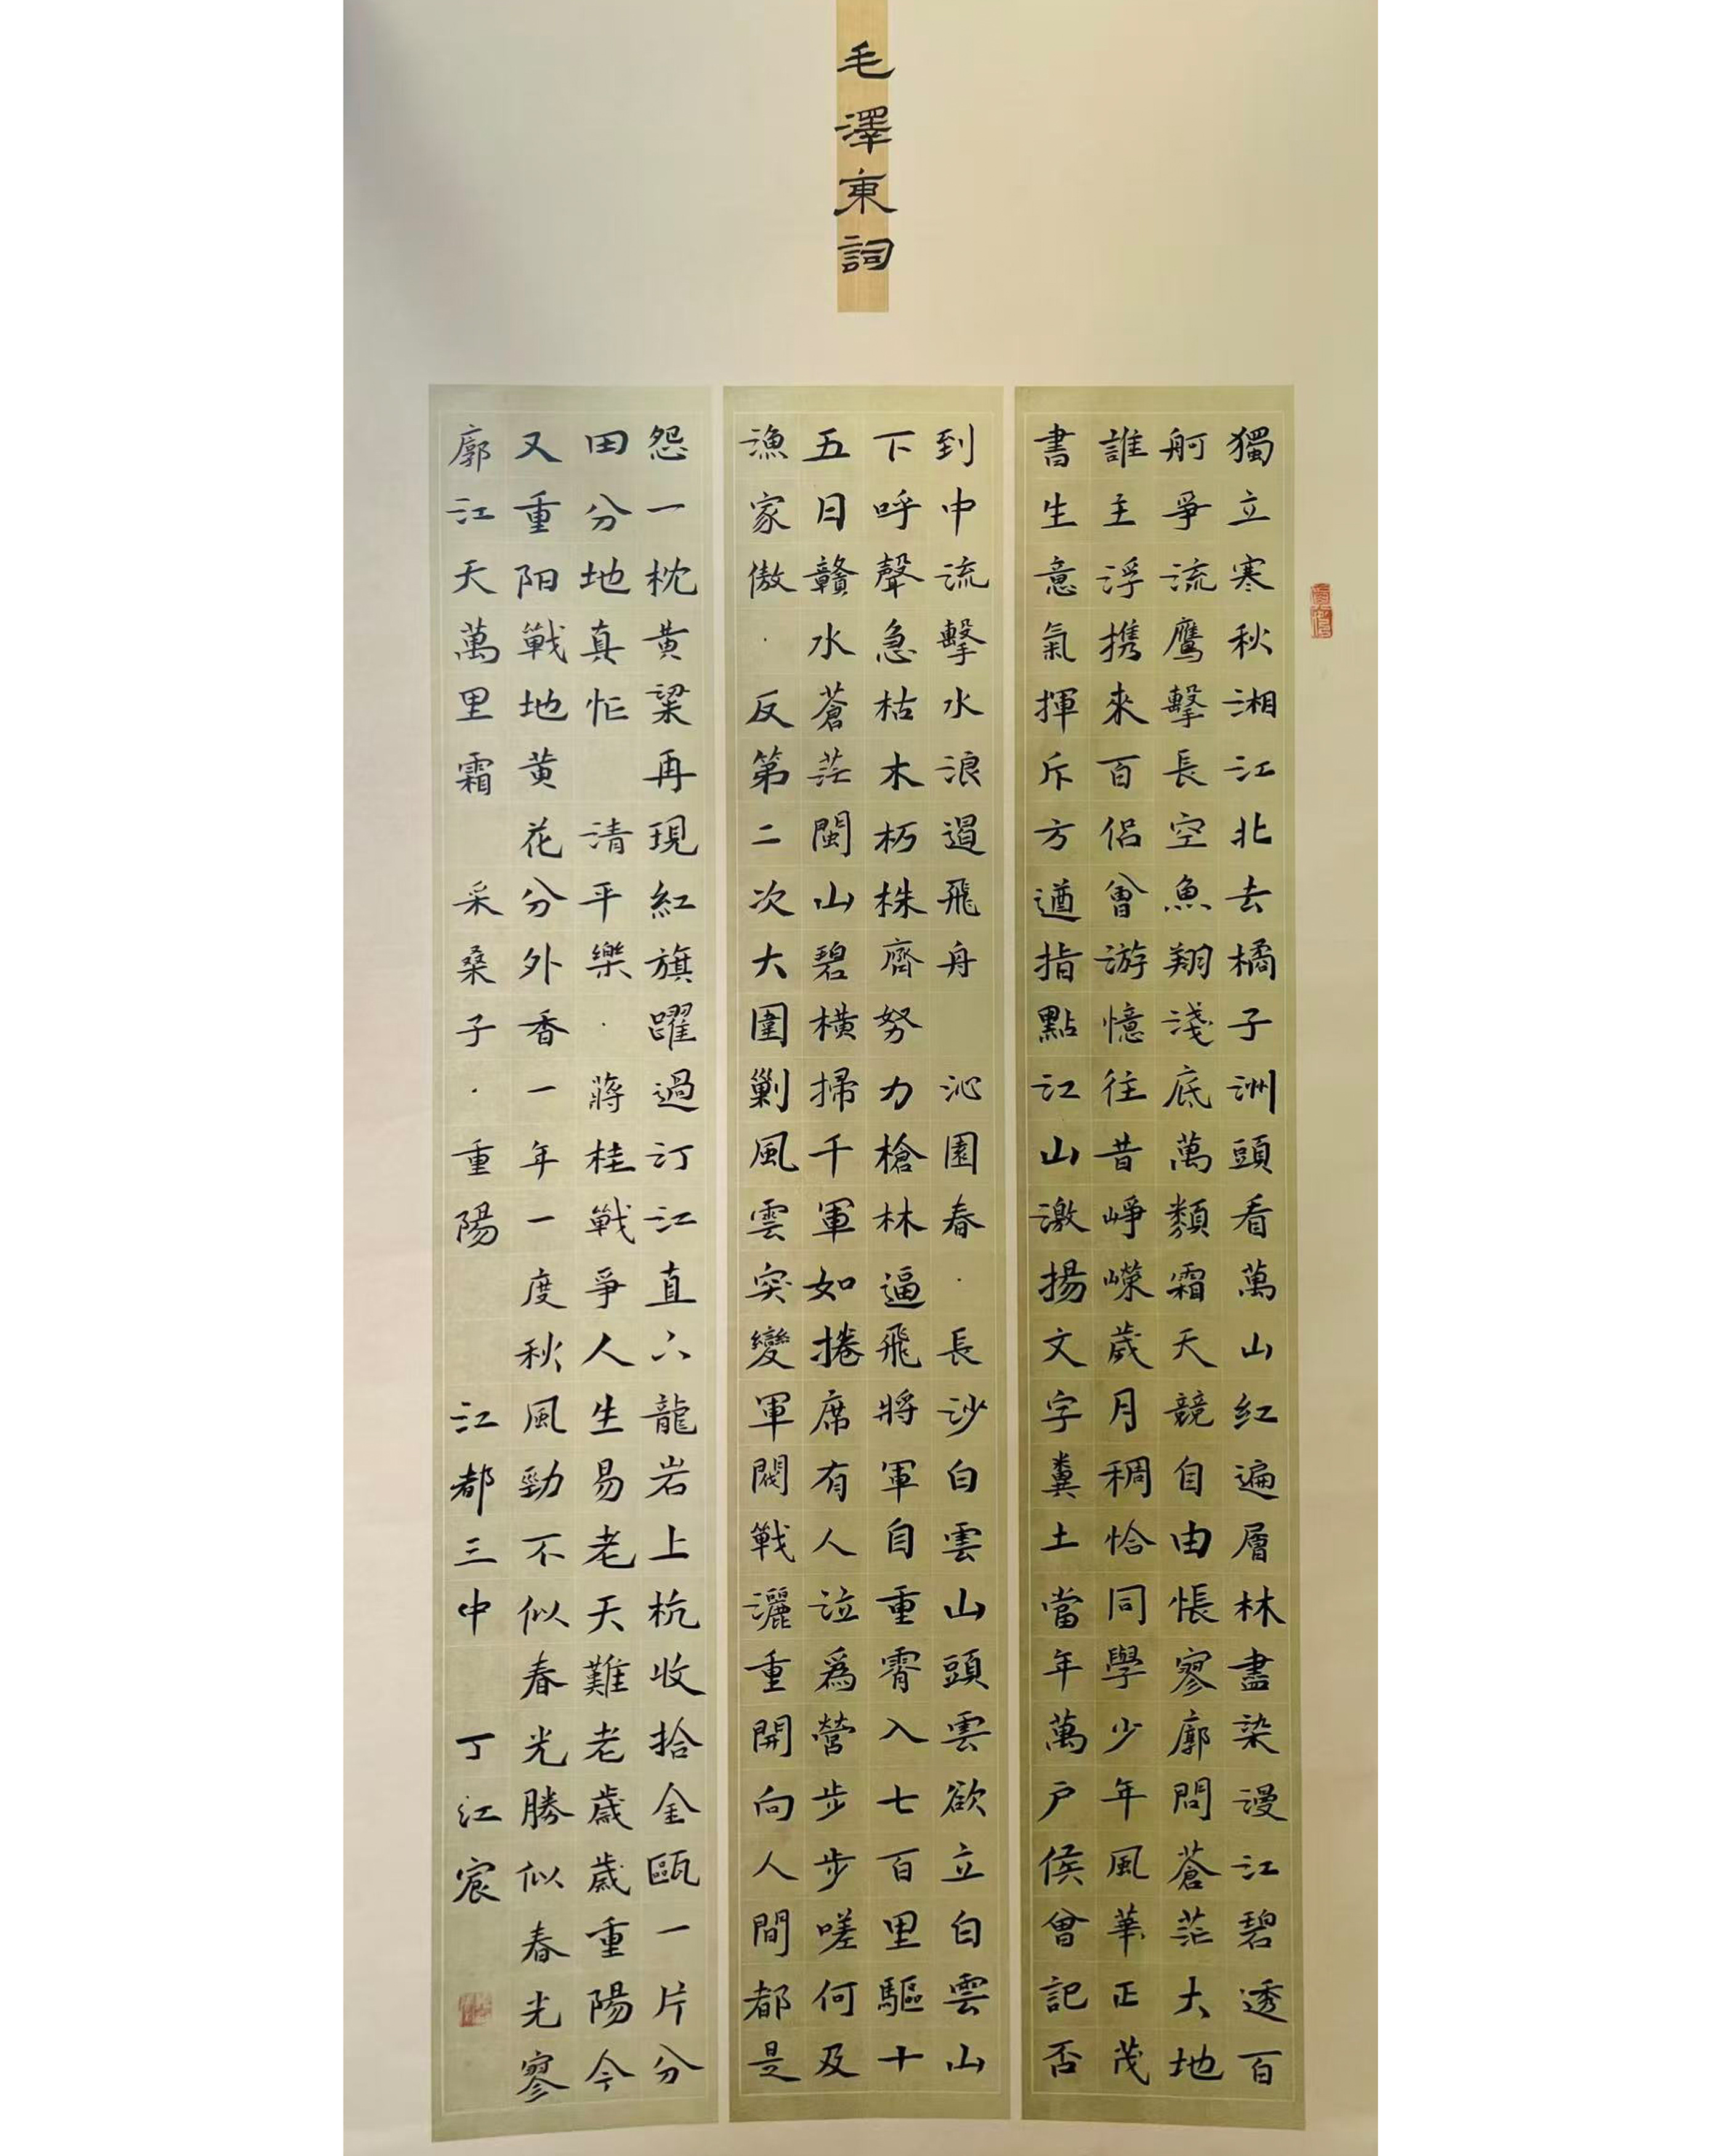 毛澤東詞
獨立寒秋湘江北去橘子洲頭看萬山红遍層林盡染漫江碧透百
舸爭流鷹擊長空魚翔淺底萬類霜天競自由悵寥廓問蒼茫大地
誰主浮携來百侣曾游憶往昔崢嶸歲月稠恰同學少年風華正茂
書生意氣揮斥方遒指點江山激揚文字糞土當年萬户侯曾記否
到中流擊水浪遏飛舟 沁園春·長沙白雲山頭雲欲立白雲山
下呼聲急枯木朽株齊努力槍林逼飛將軍自重霄入七百里驅十
五日贛水蒼茫閩山碧横掃千軍如捲席有人泣爲營步步嗟何及
漁家傲·反第二次大圍剿風雲突變軍閥戰灑重開向人間都是
怨一枕黄粱再現紅旗躍過汀江直下龍岩上杭收拾金甌一片分
田分地真忙 清平樂·蔣桂戰爭人生易老天難老歲歲重陽今
又重阳戰地黄花分外香一年一度秋風勁不似春光勝似春光寥
廓江天萬里霜 采桑子·重陽 江都三中 丁江宸